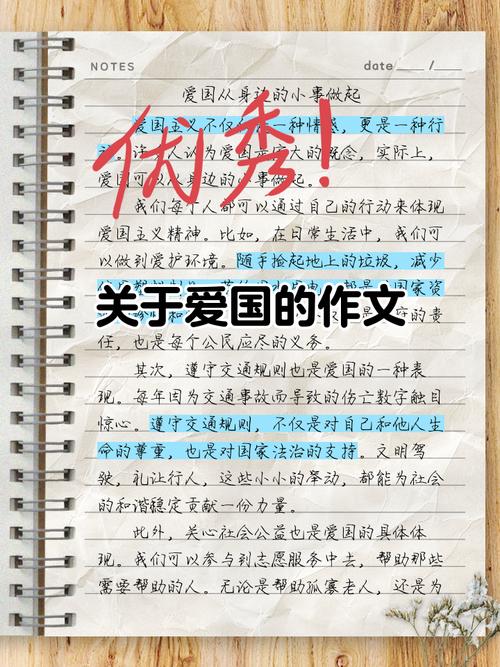 NOTES
date ____ / ____
爱国从身边的小事做起
爱国主义不仅一种情，更是一种行
人认为爱国是大的概念，实际上，
爱国可以从身边的小事做起。
优秀！
我们每个人都可以通过自己的行动来体现
爱国主义精神。比如，在日常生活中，我们可
以做到爱护环境。随手捡起地上的垃圾，减少
国家资
关于爱国的作文
的责
任，也是每个公民应尽的义务。
其次，遵守交通规则也是爱国的一种表
现。每年因为交通事故而导致的伤亡数字触目
惊心。遵守交通规则，不仅是对自己和他人生
命的尊重，也是对国家法治的支持。文明驾
驶，礼让行人，这些小小的举动，都能为社会
的和谐稳定贡献一份力量。
此外，关心社会公益也是爱国的具体体
现。我们可以参与到志愿服务中去，帮助那些
需要帮助的人。无论是帮助孤寡老人，还是为